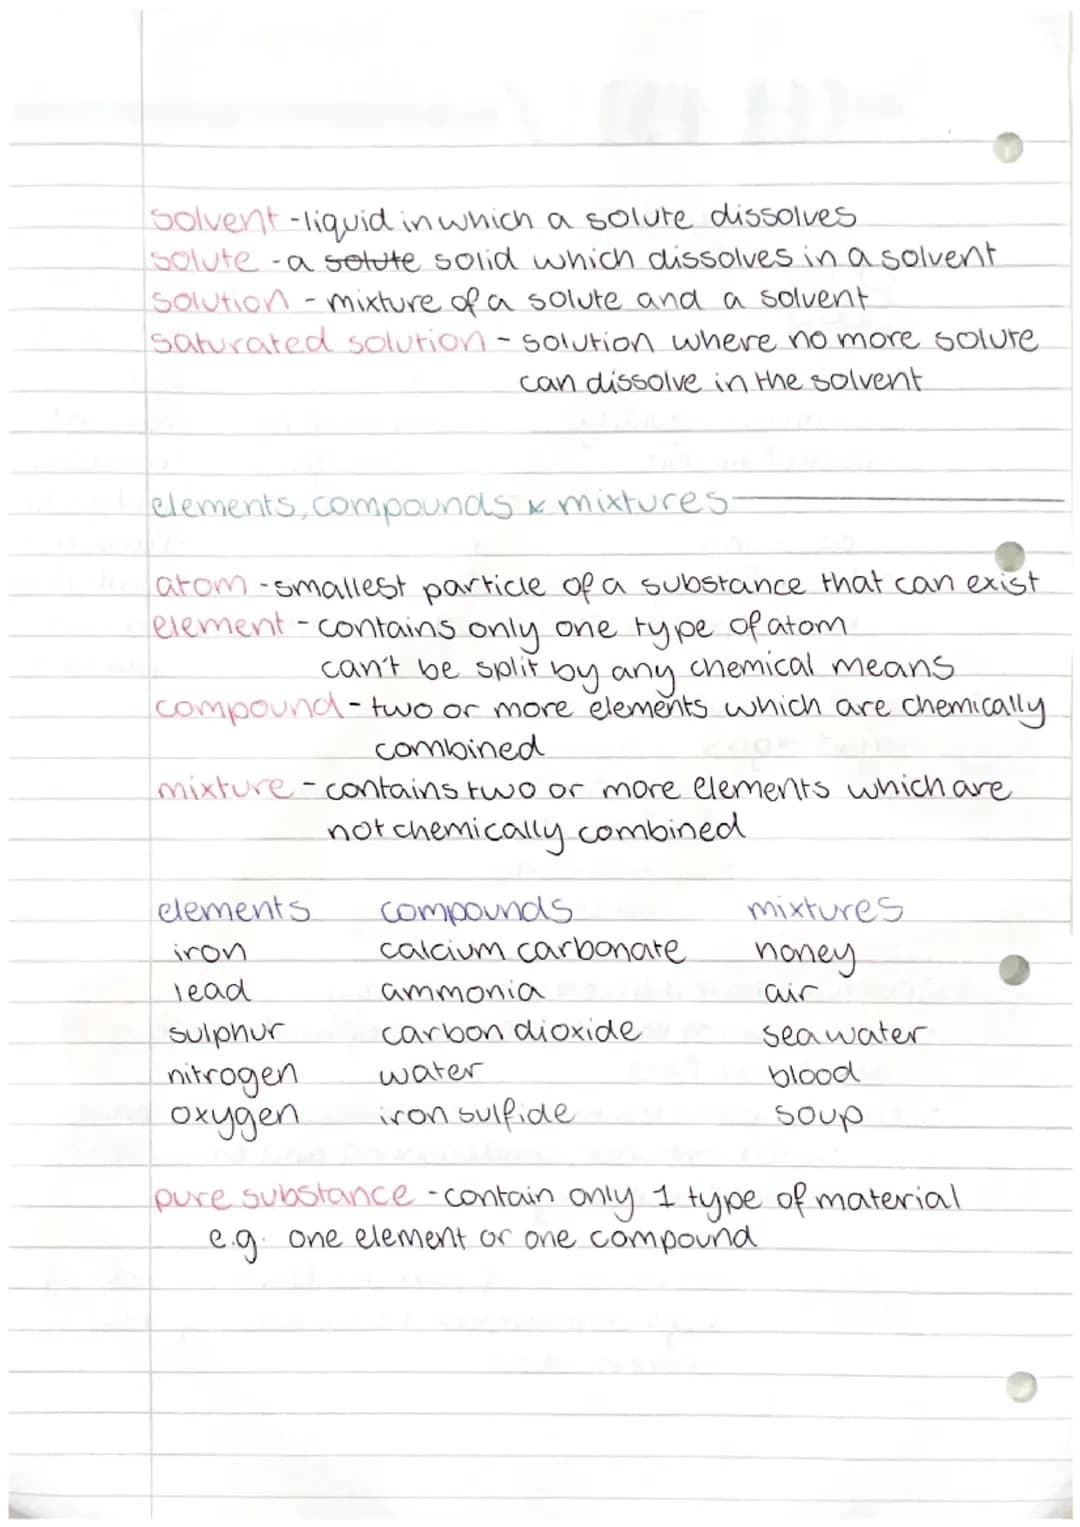 solvent - liquid in which a solute dissolves
solute - a solute solid which dissolves in a solvent
solution - mixture of a solute and a solvent
saturated solution - solution where no more solute
can dissolve in the solvent
elements, compounds & mixtures
atom - smallest particle of a substance that can exist
element - contains only one type of atom
can't be split by any chemical means
compound - two or more elements which are chemically
combined
mixture - contains two or more elements which are
not chemically combined
elements compounds mixtures
iron calcium carbonate honey
lead ammonia air
sulphur carbon dioxide sea water
nitrogen water blood
oxygen iron sulfide soup
pure substance - contain only 1 type of material
e.g. one element or one compound